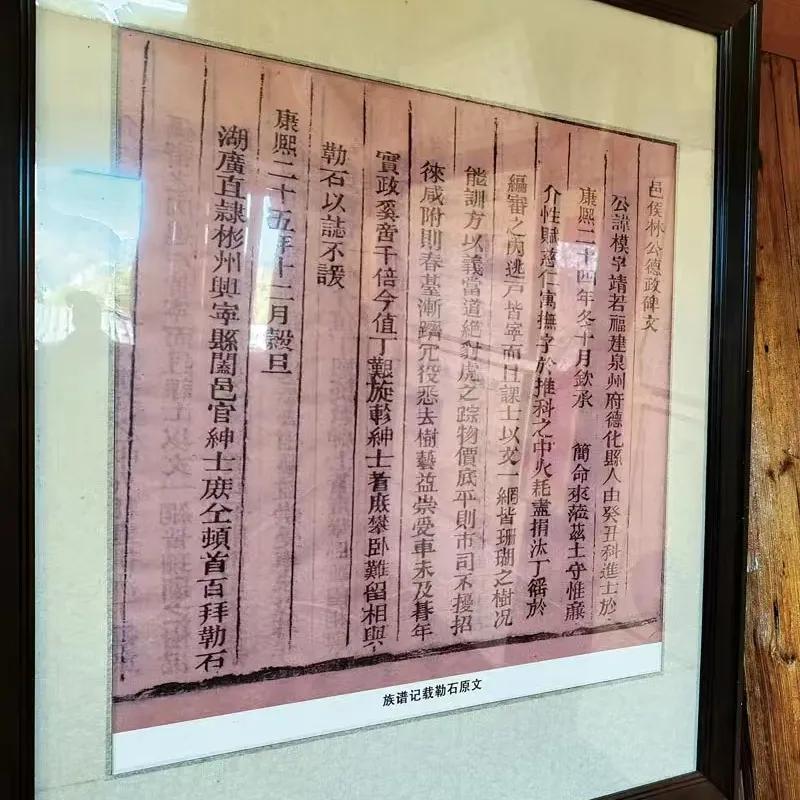 邑侯林公德政碑文
公諱模字靖若福建泉州府德化縣人由癸丑科進士於
康熙二十四年冬十月欽承　簡命來蒞茲土守惟廉
介性賦慈仁寓撫字於推科之中火耗盡捐汰丁徭於
編審之內逃戶皆寧而且課士以文一網皆珊瑚之樹況
能訓方以義當道絕豺虎之踪物價底平則市司不擾招
徠咸附則春臺漸躋冗役悉去樹藝益崇受車未及朞年
實政奚啻千倍今值丁艱旋轅紳士耆庶攀卧難留相與
勒石以誌不諼
康熙二十五年十二月穀旦
湖廣直隷彬州興寧縣闔邑官紳士庶仝頓首百拜勒石
族谱记载勒石原文